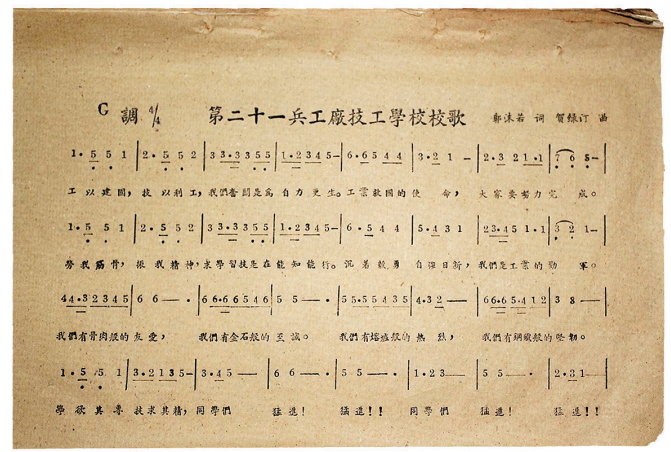 G 調 4/4 第二十一兵工廠技工學校校歌 郭沫若 詞 賀綠汀 曲
1·5 5 1 | 2·5 5 2 | 3 3·3 3 5 5 | 1·2 3 4 5- | 6·6 5 4 4 | 3·2 1 - | 2·3 2 1·1 | 7 6 8- |
工以建國，技以利工，我們奮鬥是爲自力更生。工業救國的使命，大家要努力完成。
1·5 5 1 | 2·5 5 2 | 3 3·3 3 5 5 | 1·2 3 4 5- | 6·5 4 4 | 5·4 3 1 | 2 3·4 5 1·1 | 3 2 1- |
勞我筋骨，振我精神，求學習技是在能知能行。沉着毅勇自強日新，我們是工業的勤軍。
4 4·3 2 3 4 5 | 6 6 — · | 6 6·6 6 5 4 6 | 5 5 — · | 5 5·5 5 4 3 5 | 4·3 2 — | 6 6·6 5·4 1 2 | 3 8 — |
我們有骨肉般的友愛，我們有金石般的至誠。我們有熔爐般的熱，我們有鋼鐵般的堅韌。
1·5 5 1 | 3·2 1 3 5- | 3·4 5 — | 6 6 — · | 5 5 — · | 1·2 3 — | 5 5 — | 2·3 1 — |
學欲其專技求其精，同學們 猛進！ 猛進！！ 同學們 猛進！ 猛進！！